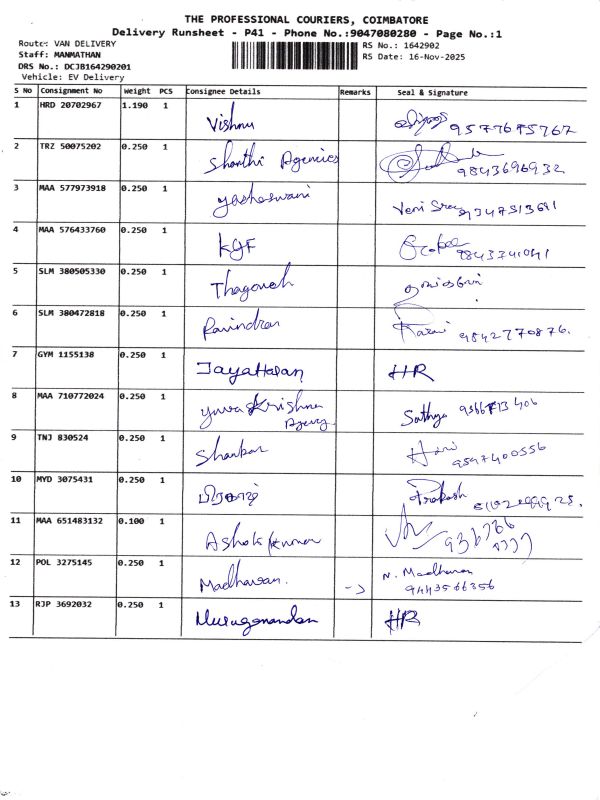 THE PROFESSIONAL COURIERS, COIMBATORE
Delivery Runsheet - P41 - Phone No.:9047080280 - Page No.:1
Route: VAN DELIVERY
RS No.: 1642902
Staff: MANMATHAN
RS Date: 16-Nov-2025
DRS No.: DCJB164290201
Vehicle: EV Delivery
S No Consignment No Weight PCS Consignee Details Remarks Seal & Signature
1 HRD 20702967 1.190 1 Vishnu 9577675767
2 TRZ 50075202 0.250 1 Shanthi Agencies 9843696932
3 MAA 577973918 0.250 1 Yasheswani 9347513691
4 MAA 576433760 0.250 1 KGF 9843741041
5 SLM 380505330 0.250 1
6 SLM 380472818 0.250 1 Ravindran 9842770876.
7 GYM 1155138 0.250 1 JayaHasan HR
8 MAA 710772024 0.250 1 Yuva Krishna Sathya
9 TNJ 830524 0.250 1 Shankar Hari 9597400556
10 MYD 3075431 0.250 1 Prakash
11 MAA 651483132 0.100 1 Ashok Kumar
12 POL 3275145 0.250 1 Madhavan. -> N. Madhavan
9443566356
13 RJP 3692032 0.250 1 Muruganandan HR